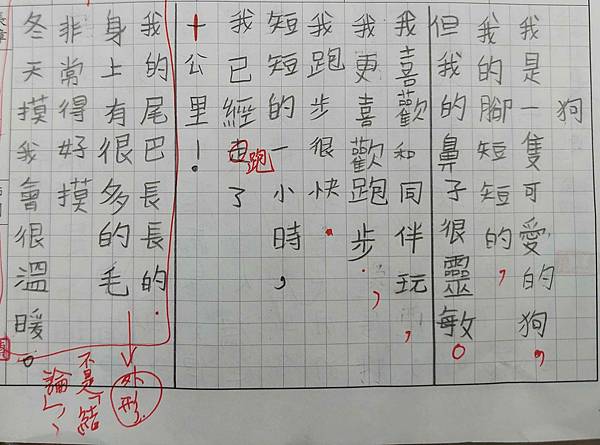 狗
我是一隻可愛的狗，
我的腳短短的，
但我的鼻子很靈敏。
我喜歡和同伴玩，
我更喜歡跑步，
我跑步很快.
短短的一小時，
我已經跑了
十公里！
我的尾巴長長的.
身上有很多的毛
非常得好摸
冬天摸我會很溫暖。
外形
不是「結
論」